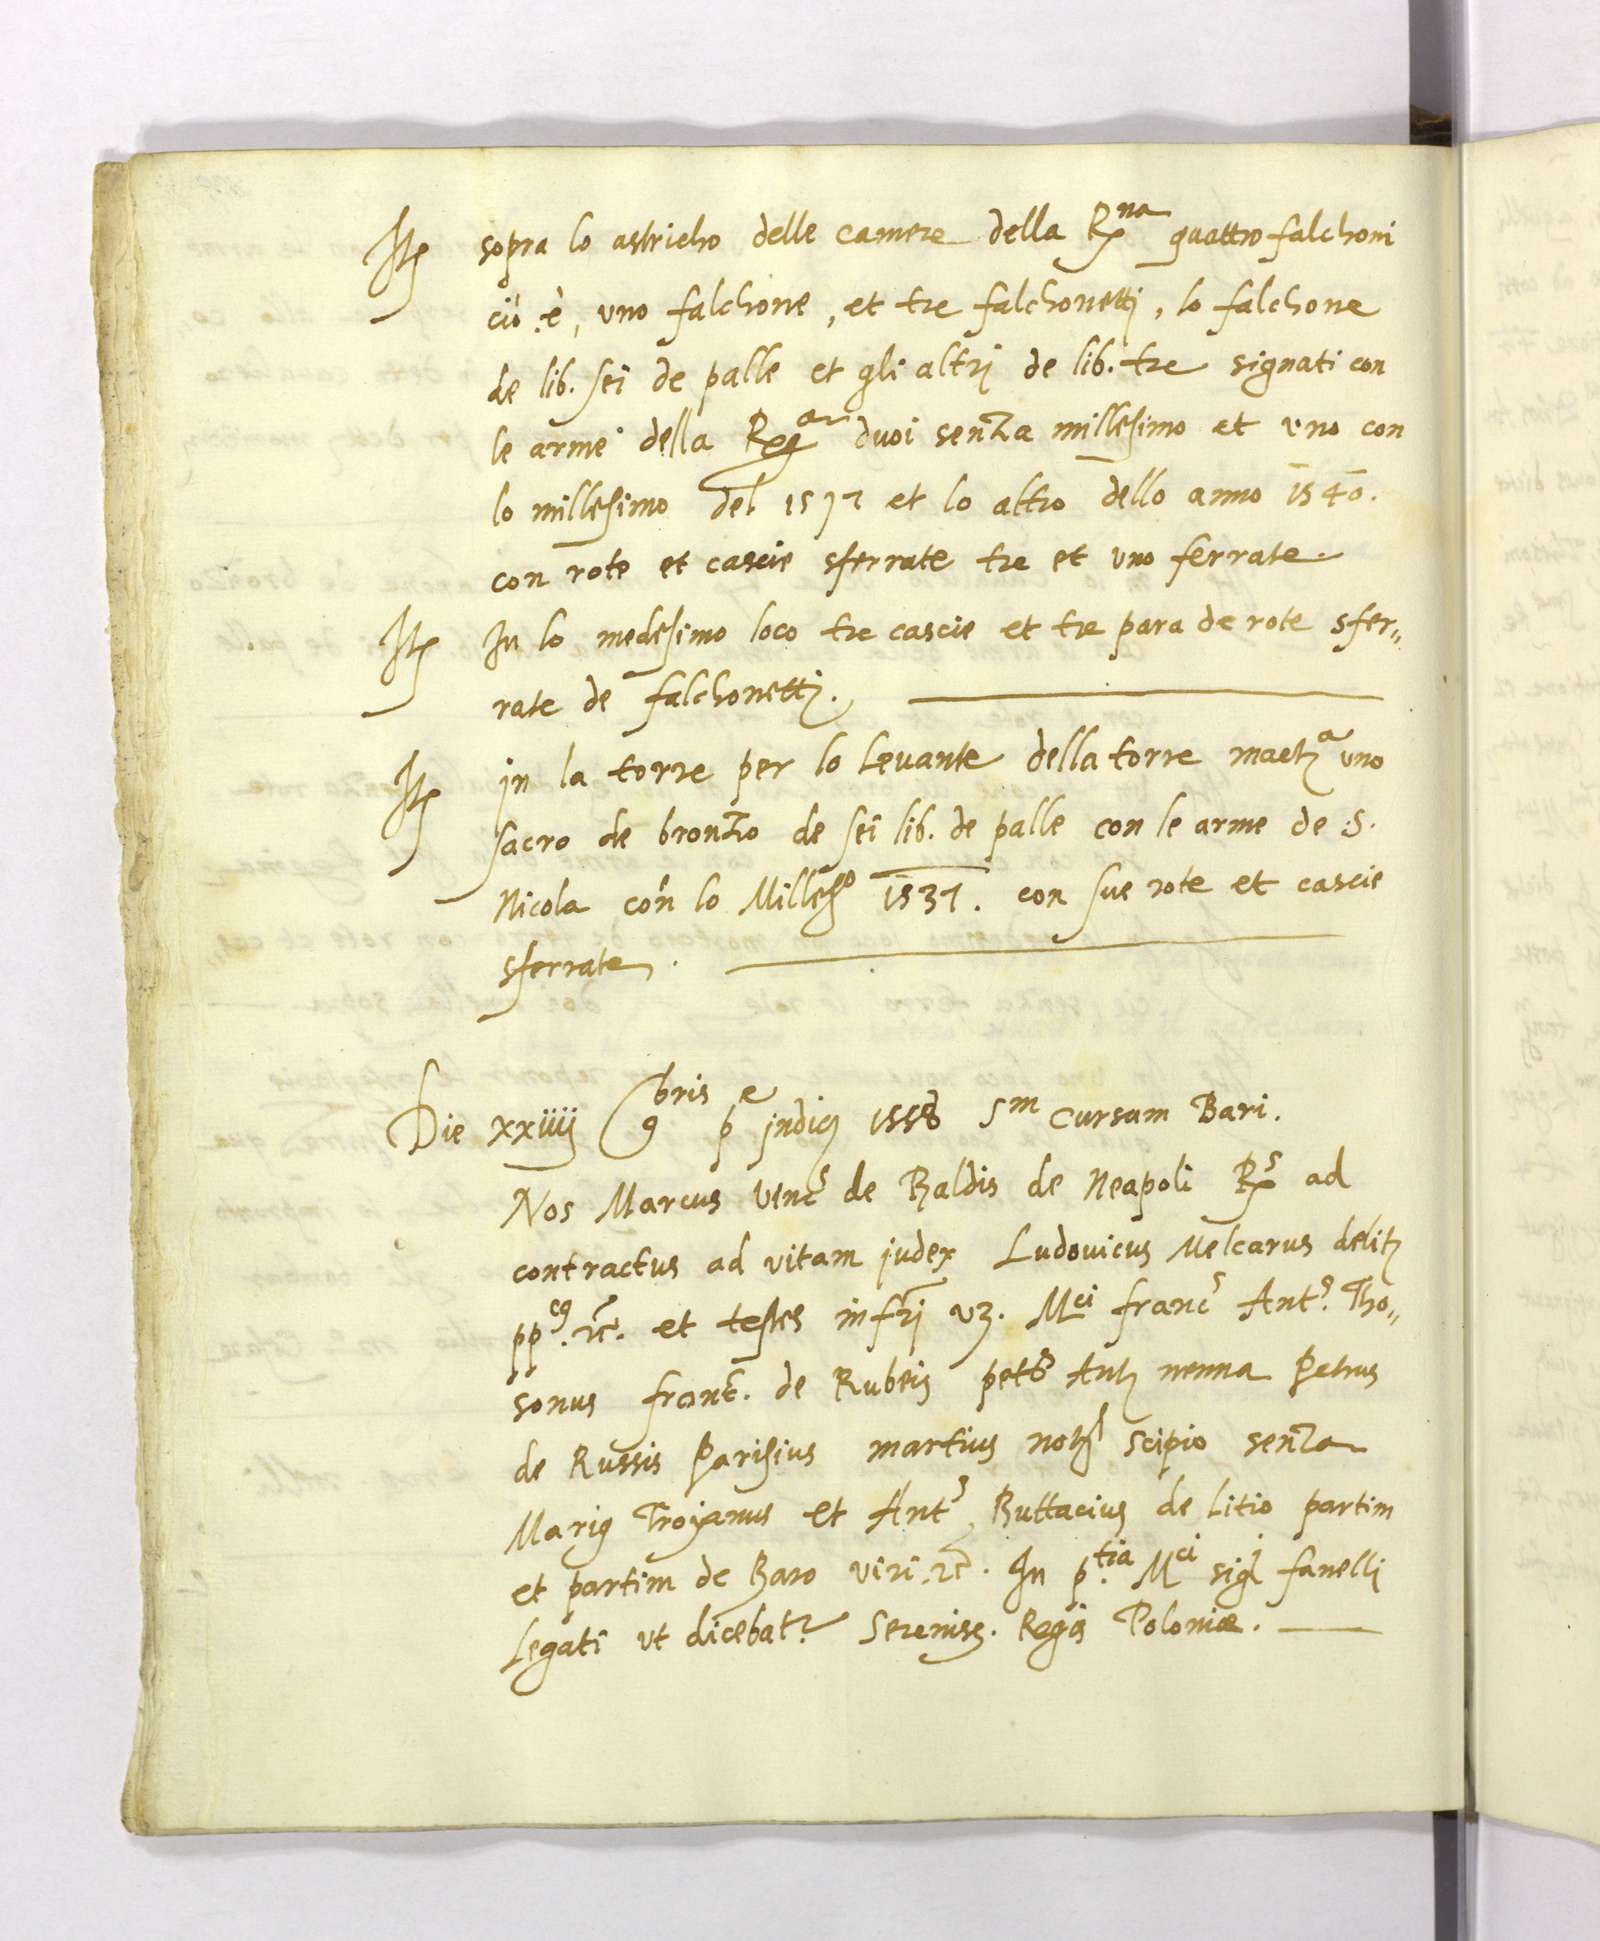 Itē sopra lo astricho delle camere della Rna quattro falchoni
ciò.è, uno falchone, et tre falchonetti, lo falchone
de lib. sei de palle et gli altri de lib. tre signati con
le arme della Rega duoi senza millesimo et uno con
lo millesimo del et lo altro dello anno 1540.
con rote et cascie sferrate tre et uno ferrate.
Itē In lo medesimo loco tre cascie et tre para de rote sfer„
rate de falchonetti.
Itē in la torre per lo Levante della torre uno
sacro de bronzo de sei lib. de palle con le arme de .S.
Nicola con lo Millemo 1537. con sue rote et cascie
sferrate.
Die xxiiij 9bris pe indicis 1558 Sm cursum Bari.
Nos Marcus Vincs de Baldis de Neapoli Rs ad
contractus ad vitam judex Ludovicus Melcarus
ppcus. rc. et testes infri vz. Mci francs Ants. Tho„
sonus franc. de Rubeis nenna Petrus
de Russis Parisius martius Scipio senza
Marig Troyanus et Ants Buttacius de Litio partim
et partim de Baro viri. rc. In p.tia Mci sigl fanelli
Legati ut dicebatr Sereniss. Regis Poloniæ.